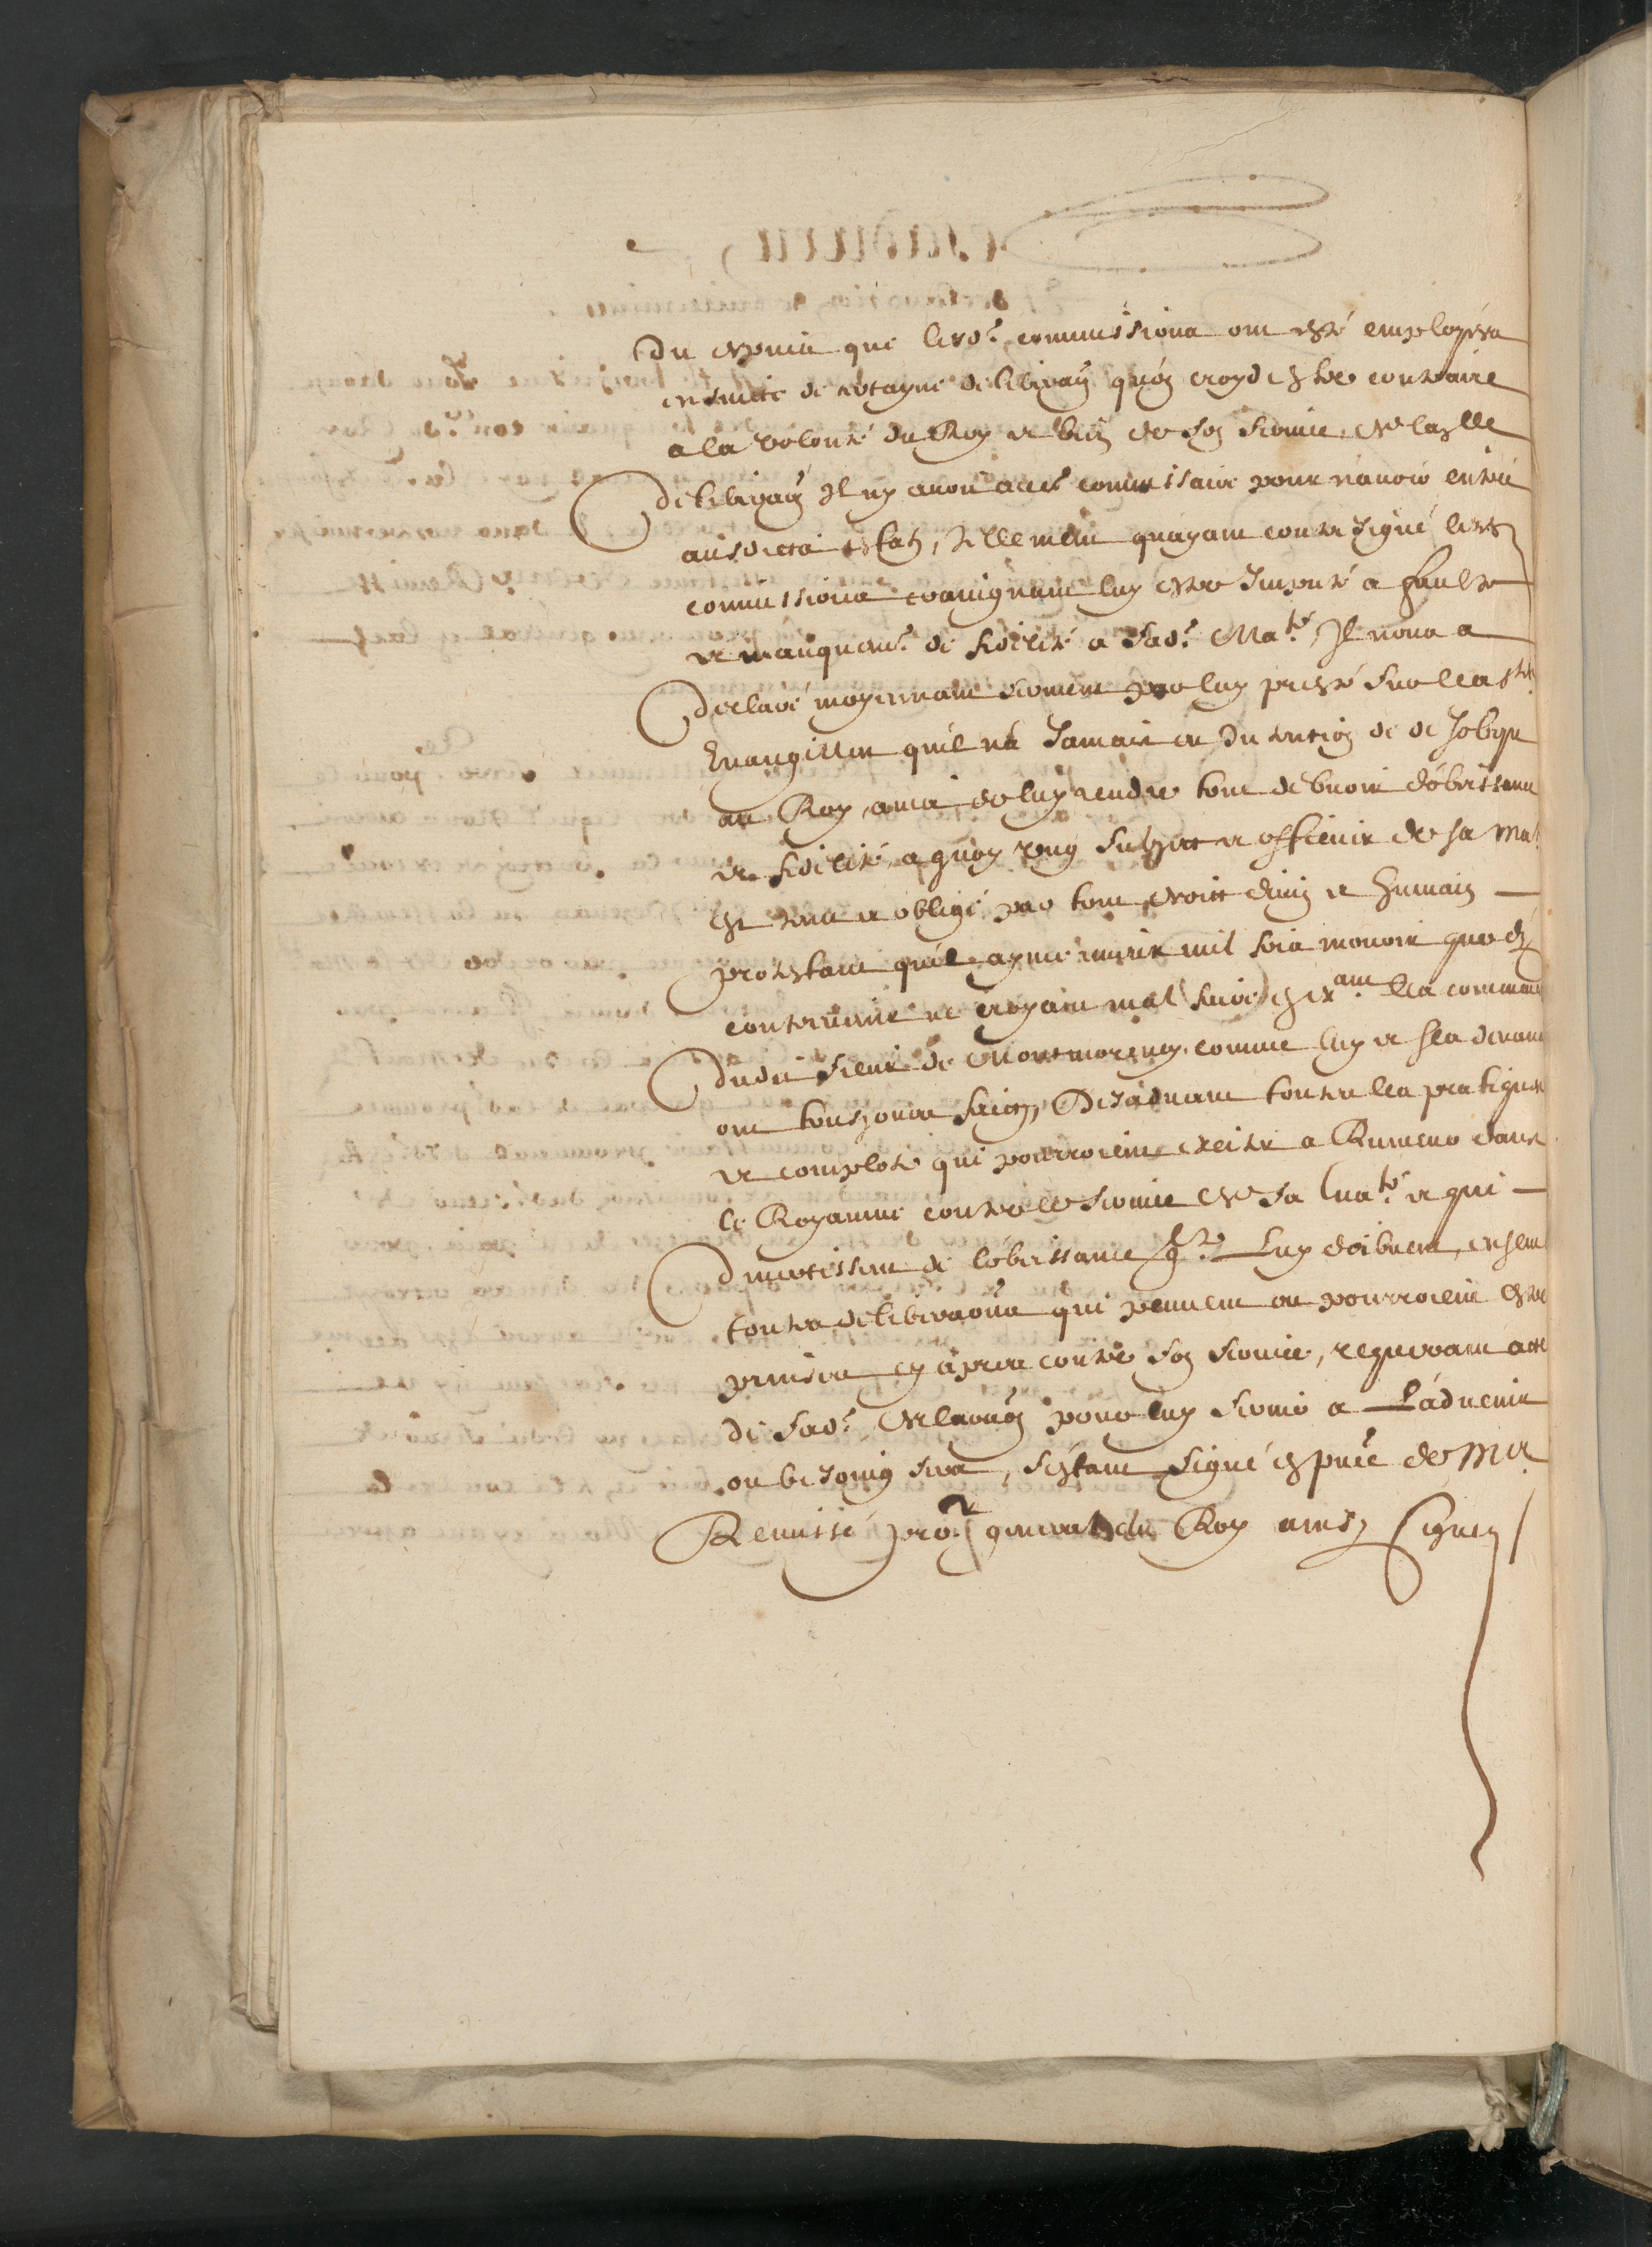 Du depuis que lesd. commissions ont esté employées
ensuite de certayne deliberaõn quon croyd estre contraire
a la volonté du Roy et bien de son service, de laqlle
deliberaõn Il ny avoit aulcᵗ commissaire pour navoir entré
ausdicts estats, Tellement quayant contre signé lesd
commissions craignant luy estre Imputé a faulte
et manquemt. de fidelité a sad. Ma.té, Il nous a
declaré moyennant serment par luy presté sur les sts
Evangilles quil na Jamais eu Intention de desobeyr
au Roy, ains de luy rendre tout debvoir dobeissance
et fidelité, a quoy tout subject et officier de sa Mat.
est tenu et obligé par tout droict divin et humain
protestant quil ayme mieux mil fois mourir que dy
contrevenir ne croyant mal faire en exant. les commend
dudit sieur de Montmorency comme luy et ses devanc
ont tousjours faict, Desadvouant toutes les pratiques
et complots qui pourroient exciter a Rumeur dans
le Royaume contre le service de sa Ma.té et qui
divertissent de lobeissance q. Luy doibvent, ensem
toutes deliberaõns qui peuvent ou pourroient estre
prinses cy apres contre son service, requerant acte
de sad. declaraõn pour luy servir a Ladvenir
ou besoing sera, sestant signé en pnce de Mr
Remissé pror general du Roy ainsy signez